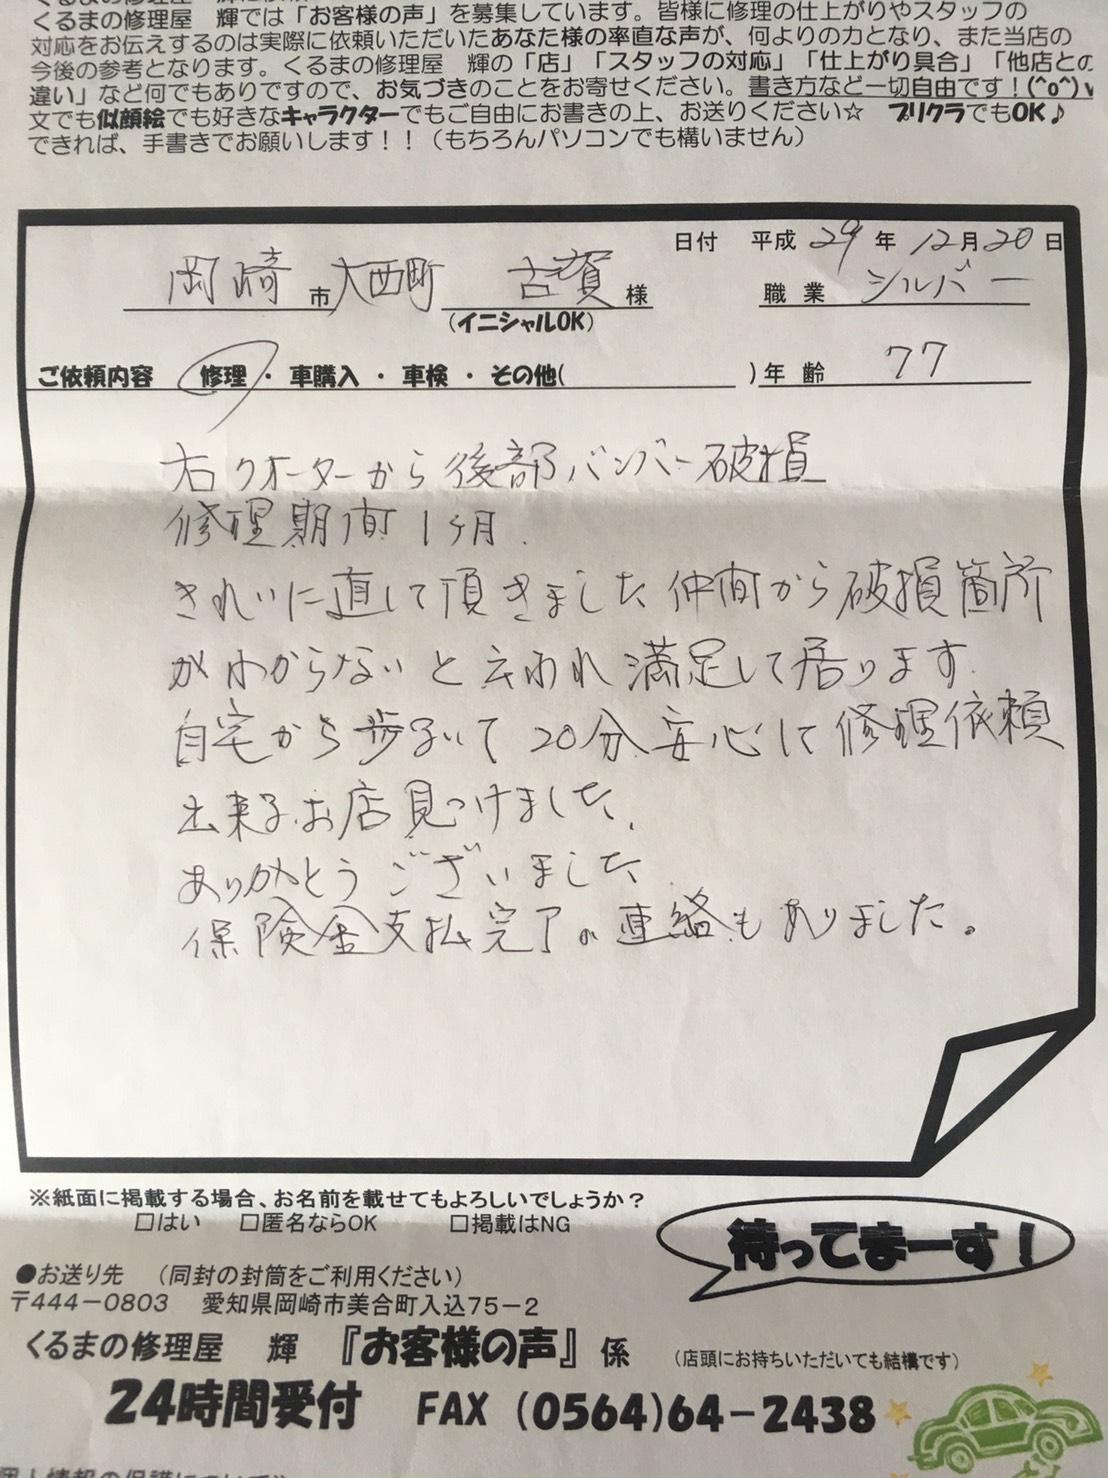 くるまの修理屋　輝では「お客様の声」を募集しています。皆様に修理の仕上がりやスタッフの
対応をお伝えするのは実際に依頼いただいたあなた様の率直な声が、何よりの力となり、また当店の
今後の参考となります。くるまの修理屋　輝の「店」「スタッフの対応」「仕上がり具合」「他店との
違い」など何でもありですので、お気づきのことをお寄せください。書き方など一切自由です！(^o^)v
文でも似顔絵でも好きなキャラクターでもご自由にお書きの上、お送りください☆　プリクラでもOK♪
できれば、手書きでお願いします！！（もちろんパソコンでも構いません）
日付　平成 29 年 12月20日
岡崎市 大西町　古賀 様　職業 シルバー
(イニシャルOK)
ご依頼内容　修理・車購入・車検・その他(　　)年齢 77
右クオーターから後部バンバー破損
修理期間1ヶ月.
きれいに直して頂きました仲間から破損箇所
がわからないと云われ満足して居ります.
自宅から歩るいて20分安心して修理依頼
出来るお店見つけました.
ありがとうございました
保険金支払完了の連絡もありました。
※紙面に掲載する場合、お名前を載せてもよろしいでしょうか？
□はい　□匿名ならOK　□掲載はNG
待ってまーす！
●お送り先　（同封の封筒をご利用ください）
〒444－0803　愛知県岡崎市美合町入込75－2
くるまの修理屋　輝　『お客様の声』係　（店頭にお持ちいただいても結構です）
24時間受付　FAX（0564)64－2438